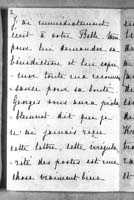 2
J'ai immédiatement
écrit à votre Belle-Mère
pour lui demander sa
bénédiction et lui expri-
mer toute ma reconnais-
sance pour sa bonté.
Georges vous aura proba-
blement dit que je
n'ai jamais reçu
cette lettre, cette irrégula-
rité des postes est une
chose vraiment bien